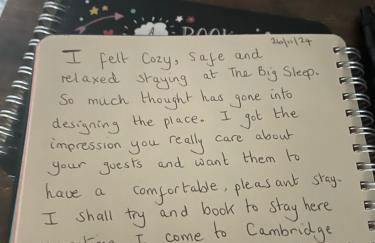 A BOOK
20/11/24
I felt Cozy, Safe and
relaxed staying at The Big Sleep.
So much thought has gone into
designing the place. I got the
impression you really care about
your guests and want them to
have a comfortable, pleasant stay.
I shall try and book to stay here
I come to Cambridge